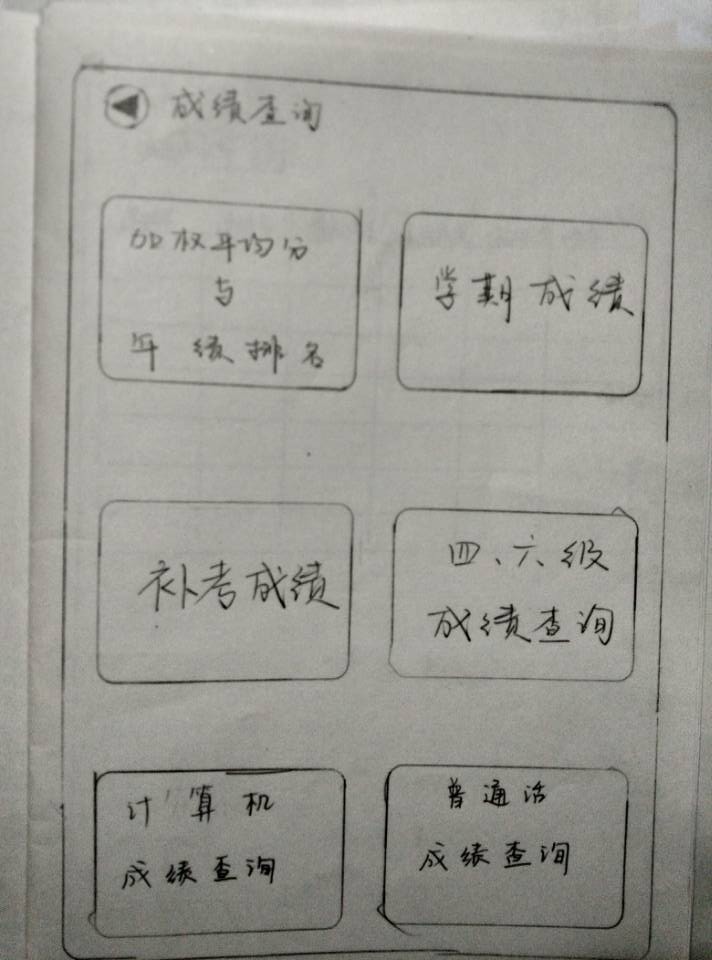 成绩查询
加权平均分
与
年绩排名
学期成绩
补考成绩
四、六级
成绩查询
计算机
成绩查询
普通话
成绩查询